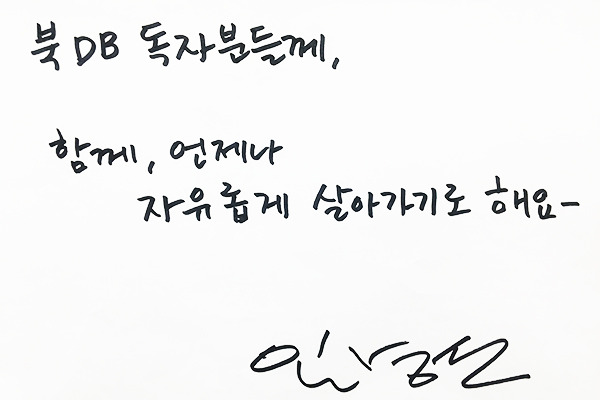 북DB 독자분들께,
함께, 언제나
자유롭게 살아가기로 해요-